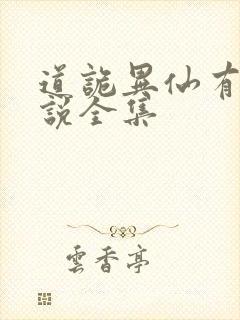 道詭異仙有
說全集
雲香亭